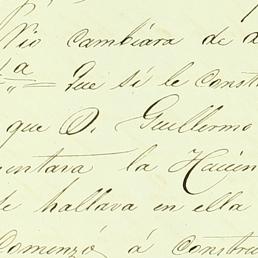 Nio cambiára de d
1a Que si le constr
que D. Guillermo
entara la Hacien
se hallava en ella
Comenzó á constru